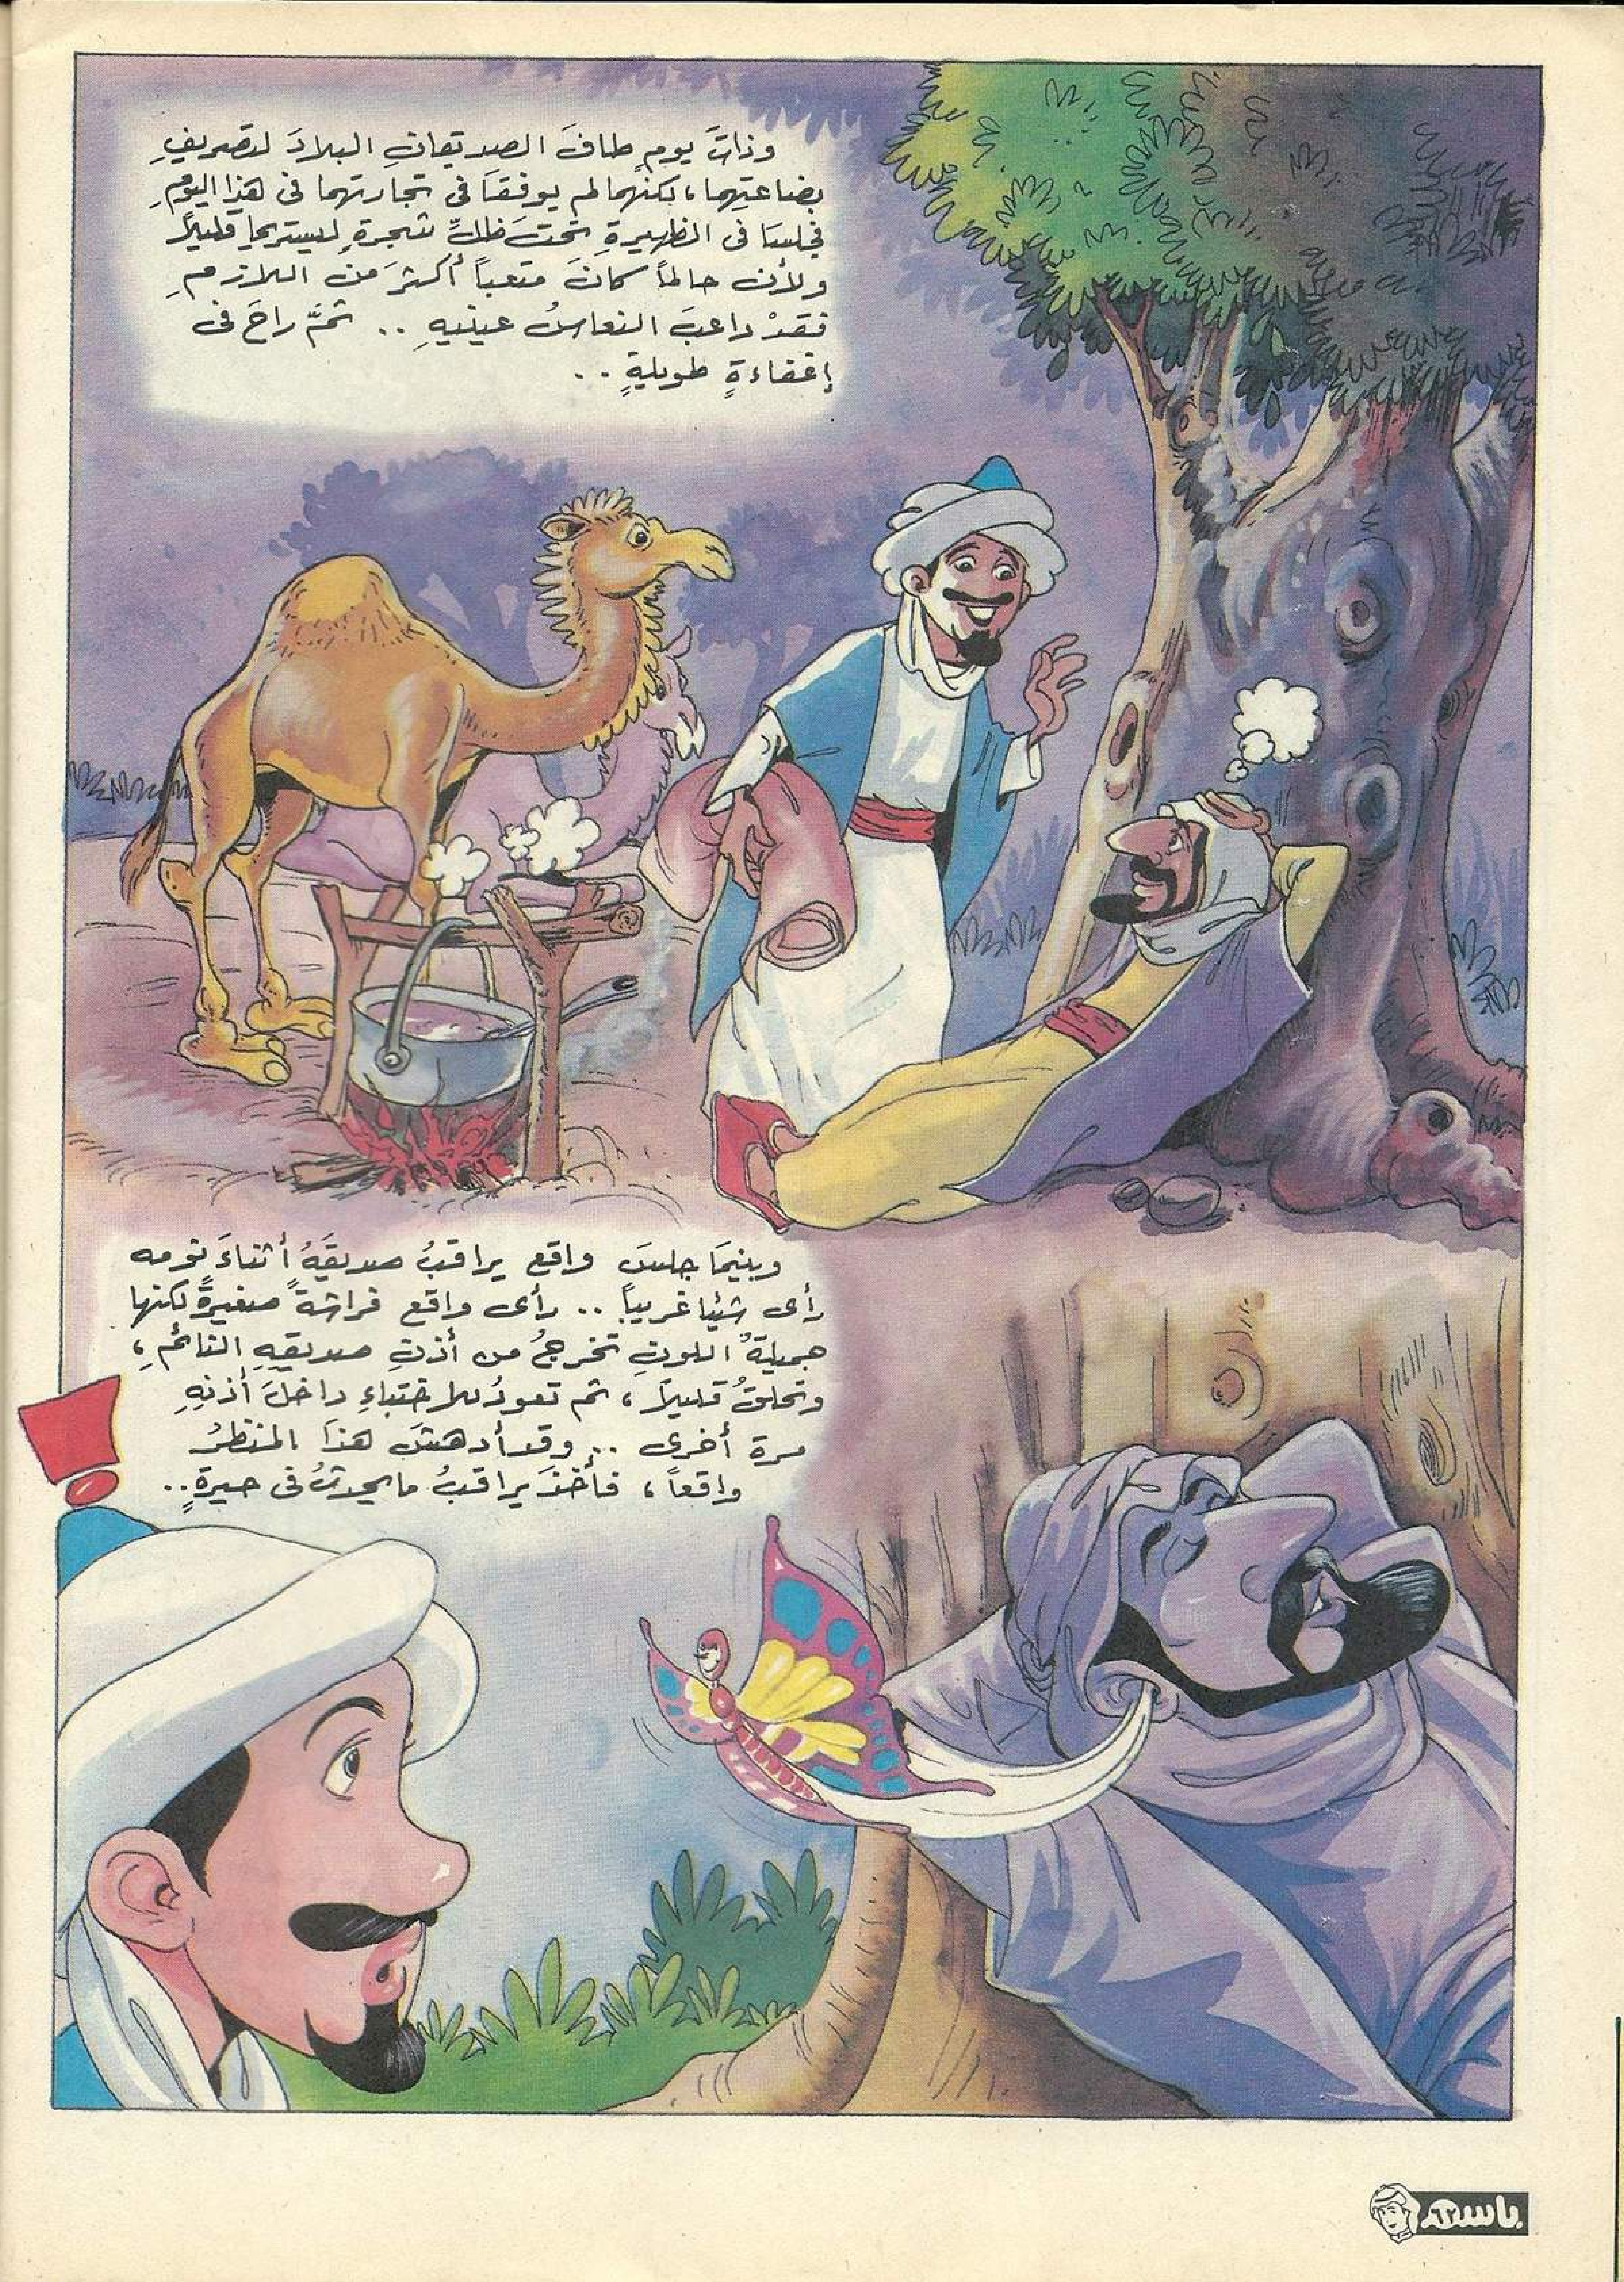 وذاتَ يومٍ طافَ الصديقانِ البلادَ لتصريفِ
بضاعتِهما، لكنهما لم يوفقَا فى تجارتهما فى هذا اليومِ
فجلسَا فى الظهيرةِ تحتَ ظلِّ شجرةٍ ليستريحا قليلاً
ولأن حالماً كانَ متعباً أكثرَ منَ اللازمِ
فقدْ داعبَ النعاسُ عينيهِ .. ثمَّ راحَ فى
إغفاءةٍ طويلةٍ ..
وبينمَا جلسَ واقع يراقبُ صديقَهُ أثناءَ نومه
رأى شيئا غريباً .. رأى واقع فراشةً صغيرةً لكنها
جميلةُ اللونِ تخرجُ من أذنِ صديقهِ النائمِ،
وتحلقُ قليلاً، ثم تعودُ للاختباءِ داخلَ أذنِهِ
مرة أخرى .. وقد أدهشَ هذا المنظرُ
واقعاً، فأخذَ يراقبُ ما يحدثُ فى حيرةٍ..
!
باسم